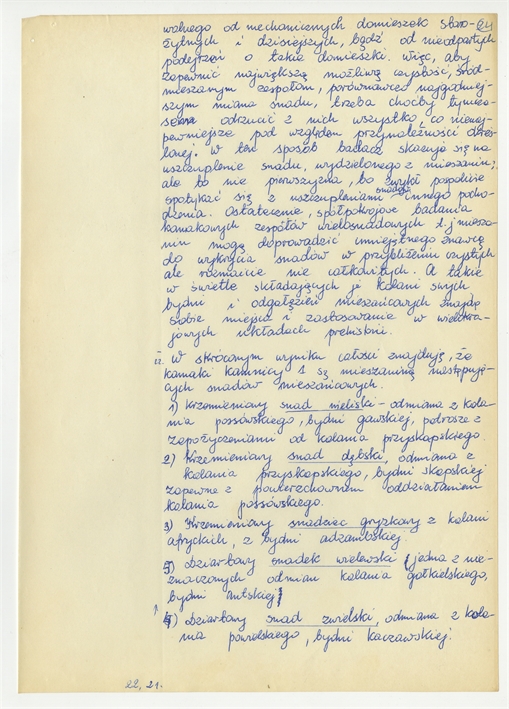 wolnego od mechanicznych domieszek staro- 24
żytnych i dzisiejszych, bądź od nieodpartych
podejrzeń o takie domieszki. Więc, aby
zapewnić największą możliwą czystość, śród-
mieszanym zespołom, porównawczo najgodniej-
szym miana snadu, trzeba choćby tymcza-
sowo odrzucić z nich wszystko, co nienaj-
pewniejsze pod względem przynależności okreś-
lonej. W ten sposób badacz skazuje się na
uszczuplenie snadu, wydzielonego z mieszaniny,
ale to nie pierwszyzna, bo zwykł pospolicie
spotykać się z uszczupleniami snadów innego pocho-
dzenia. Ostatecznie, spółpokrojowe badania
kamakowych zespołów wielosnadowych t.j. miesza-
nin mogą doprowadzić umiejętnego znawcę
do wykrycia snadów w przybliżeniu czystych
ale rozmaicie nie całkowitych. A takie
w świetle składających je kolani swych
bydni i odgałęzień mieszańcowych znajdą
sobie miejsca i zastosowanie w wielokra-
jowych układach prehistrii.
W skróconym wyniku całości znajduję, że
kamaki Kamnicy 1 są mieszaniną następują-
cych snadów mieszańcowych.
1) Krzemieniawy snad mieliski - odmiana z kola-
nia possowskiego, bydni gawskiej, potrosze z
zapożyczeniami od kolania przyskopskiego.
2) Krzemieniawy snad dębski, odmiana z
kolania przyskopskiego, bydni skopskiej
zapewne z powierzchownem oddziałaniem
kolania possowskiego.
3) Krzemieniawy snadziec gryzkowy z kolani
afryckich, z bydni adzambskiej.
5) Dziarstowy snadek wielewski (jedna z nie-
znaczonych odmian kolania gałkielskiego,
bydni rutskiej)
4) Dziarstowy snad zwielski, odmiana z kola-
nia powolskiego, bydni kaczawskiej.
22, 21.